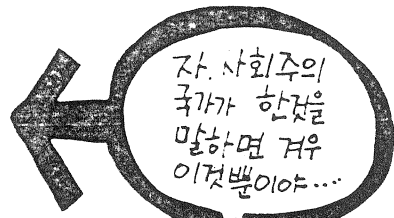 자. 사회주의
국가가 한것을
말하면 겨우
이것뿐이야....